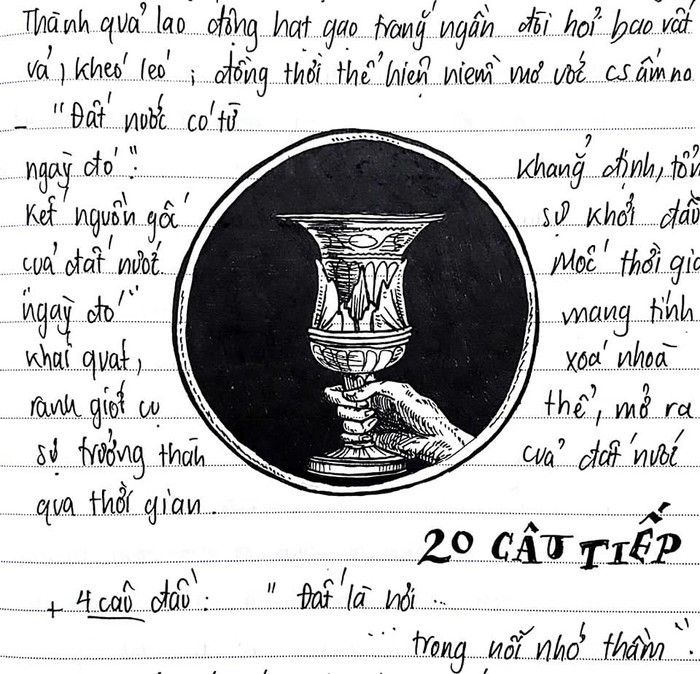 Thành quả lao động hạt gạo trắng ngần đòi hỏi bao vất
vả, khéo léo; đồng thời thể hiện niềm mơ ước cs ấm no
- "Đất nước có từ
ngày đó": khẳng định, tổn
kết nguồn gốc sự khởi đầu
của đất nước. Mốc thời gia
"ngày đó" mang tính
khái quát, xoá nhoà
ranh giới cụ thể, mở ra
sự trưởng thàn của đất nước
qua thời gian.
20 CÂU TIẾP
+ 4 câu đầu: " Đất là nơi ..
... trong nỗi nhớ thầm".